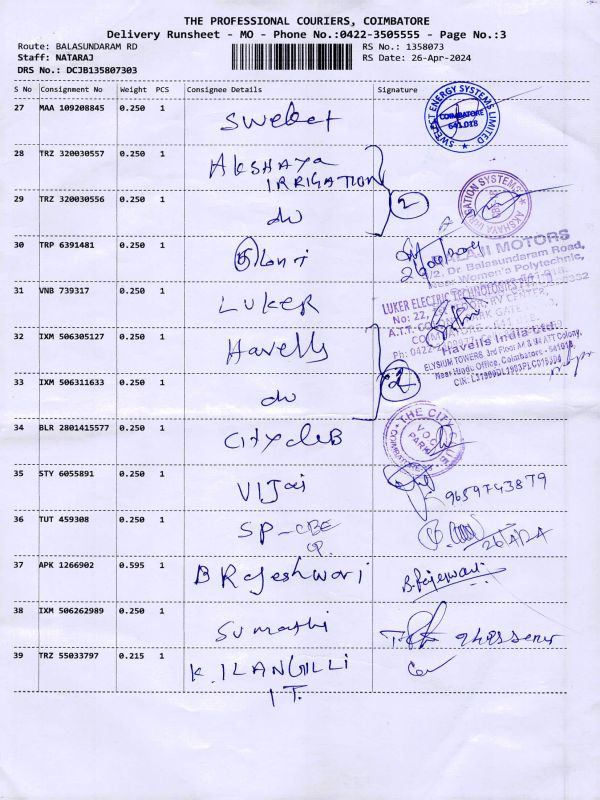 THE PROFESSIONAL COURIERS, COIMBATORE
Delivery Runsheet - MO - Phone No.:0422-3505555 - Page No.:3
Route: BALASUNDARAM RD
Staff: NATARAJ
DRS No.: DCJB135807303
RS No.: 1358073
RS Date: 26-Apr-2024
S No Consignment No Weight PCS Consignee Details Signature
27 MAA 109208845 0.250 1 Swelect
SWELECT ENERGY SYSTEMS LIMITED
COIMBATORE
641.018
28 TRZ 320030557 0.250 1 AKSHAYA
IRRIGATION
29 TRZ 320030556 0.250 1 do
2
AKSHAYA IRRIGATION SYSTEMS
30 TRP 6391481 0.250 1
BALAJI MOTORS
Dr. Balasundaram Road,
Near Women's Polytechnic,
31 VNB 739317 0.250 1 LUKER
LUKER ELECTRIC TECHNOLOGIES
32 IXM 506305127 0.250 1 Havells
33 IXM 506311633 0.250 1 do
2
Havells India Ltd.
ELYSIUM TOWERS 3rd Floor A4 & B4 ATT Colony,
Near Hindu Office, Coimbatore - 641018.
34 BLR 2801415577 0.250 1 CITY CLUB
THE CITY CLUB
V.O.C
PARK
35 STY 6055891 0.250 1 Vijai
9659743879
36 TUT 459308 0.250 1 SP-CBE
CP.
37 APK 1266902 0.595 1 B Rajeshwari
B. Rajeswari
38 IXM 506262989 0.250 1 Sumathi
39 TRZ 55033797 0.215 1 K. ILANGILLI
I T.